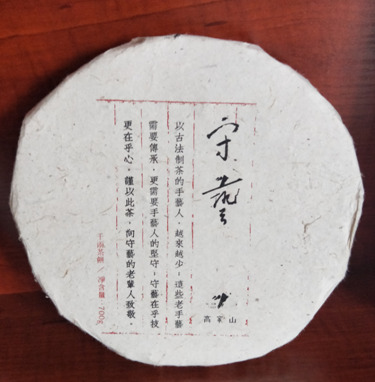 守藝
高家山
以古法制茶的手藝人，越來越少。這些老手藝
需要傳承，更需要手藝人的堅守。守藝在乎技
更在乎心。謹以此茶，向守藝的老輩人致敬。
千兩茶餅／淨含量：700g